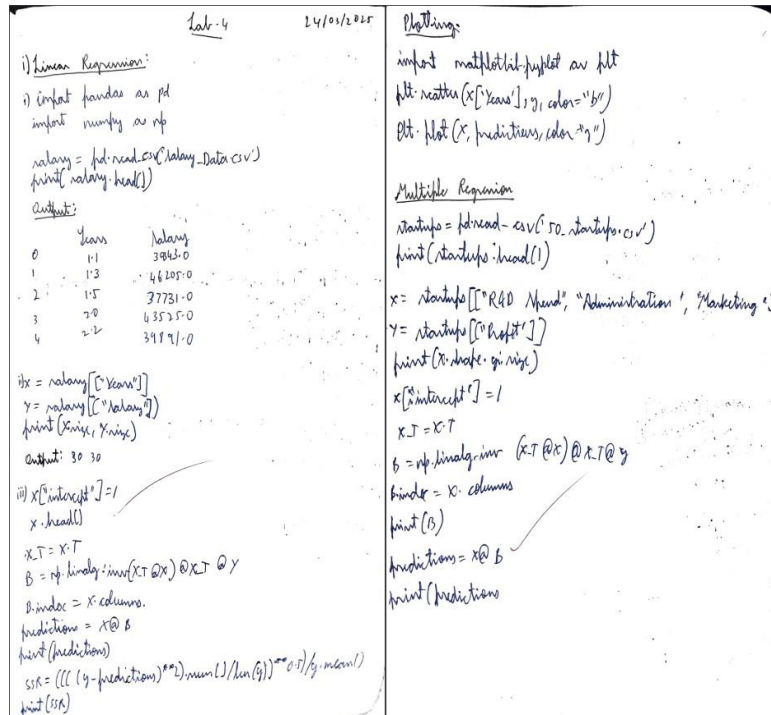 Lab-4
24/03/2025
i) Linear Regression:
i) import pandas as pd
import numpy as np
salary = pd.read_csv('salary_Data.csv')
print(salary.head())
Output:
Years Salary
0 1.1 39343.0
1 1.3 46205.0
2 1.5 37731.0
3 2.0 43525.0
4 2.2 39891.0
ii) x = salary[["Years"]]
y = salary[["Salary"]]
print(x.size, y.size)
Output: 30 30
iii) x["intercept"]=1
x.head()
x_T = x.T
B = np.linalg.inv(x_T @ x) @ x_T @ y
B.index = x.columns.
predictions = x @ B
print(predictions)
SSR = ((( (y-predictions)**2).sum()/len(y))**0.5)/y.mean()
print(SSR)
Plotting:
import matplotlib.pyplot as plt
plt.scatter(x['Years'], y, color="b")
plt.plot(x, predictions, color="g")
Multiple Regression
startups = pd.read-csv('50_startups.csv')
print(startups.head())
x = startups[["R&D Spend", "Administration", "Marketing
y = startup[["Profit']]
print(x.shape, y.size)
x["intercept"]=1
x_T = x.T
B = np.linalg.inv (x_T @ x) @ x_T @ y
B.index = x.columns
print(B)
predictions = x @ B
print(predictions